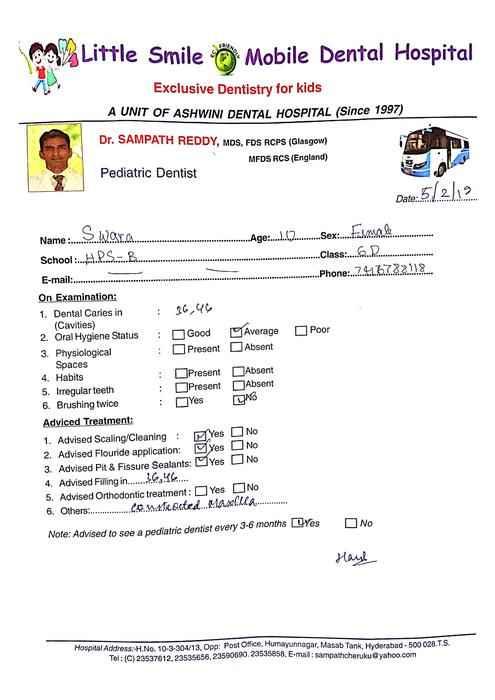 Little Smile ECO FRIENDLY Mobile Dental Hospital
Exclusive Dentistry for kids
A UNIT OF ASHWINI DENTAL HOSPITAL (Since 1997)
Dr. SAMPATH REDDY, MDS, FDS RCPS (Glasgow)
MFDS RCS (England)
Pediatric Dentist
Date: 5/2/19
Name: Swara Age: 10 Sex: Female
School: HPS-B Class: 6D
E-mail: Phone: 7416788118
On Examination:
1. Dental Caries in (Cavities) : 36,46
2. Oral Hygiene Status : Good Average Poor
3. Physiological Spaces : Present Absent
4. Habits : Present Absent
5. Irregular teeth : Present Absent
6. Brushing twice : Yes No
Adviced Treatment:
1. Advised Scaling/Cleaning : Yes No
2. Advised Flouride application: Yes No
3. Advised Pit & Fissure Sealants: Yes No
4. Advised Filling in 36,46
5. Advised Orthodontic treatment : Yes No
6. Others: constricted Maxilla
Note: Advised to see a pediatric dentist every 3-6 months Yes No
Hospital Address:-H.No. 10-3-304/13, Opp: Post Office, Humayunnagar, Masab Tank, Hyderabad - 500 028.T.S.
Tel : (C) 23537612, 23535656, 23590690. 23535858, E-mail : sampathcheruku@yahoo.com